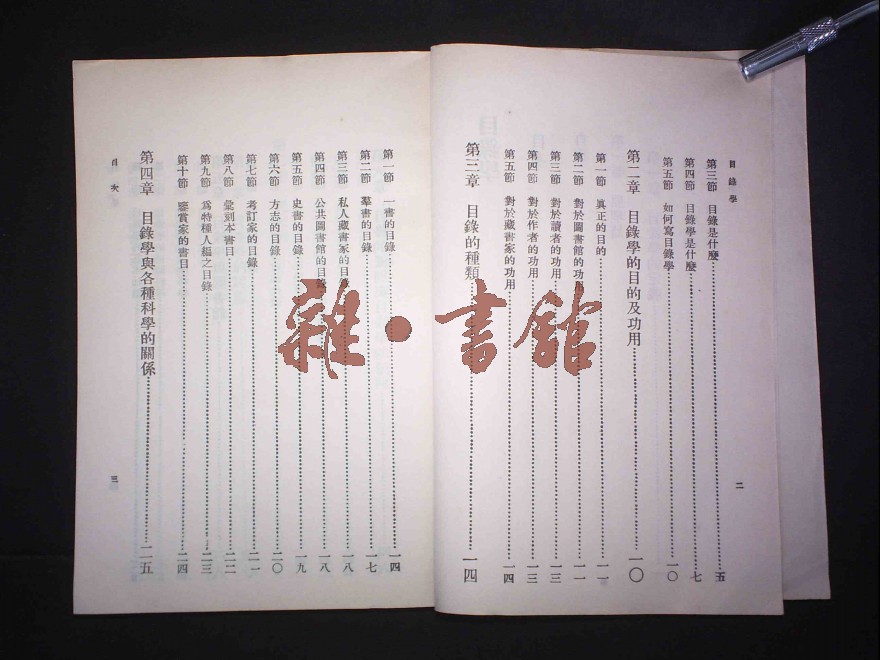 目錄學
第三節　目錄是什麼……五
第四節　目錄學是什麼……七
第五節　如何寫目錄學……一〇
第二章　目錄學的目的及功用……一〇
第一節　眞正的目的……一一
第二節　對於圖書館的功用……一一
第三節　對於讀者的功用……一三
第四節　對於作者的功用……一三
第五節　對於藏書家的功用……一四
第三章　目錄的種類……一四
二
第一節　一書的目錄……一四
第二節　羣書的目錄……一七
第三節　私人藏書家的目錄……一八
第四節　公共圖書館的目錄……一八
第五節　史書的目錄……一九
第六節　方志的目錄……二〇
第七節　考訂家的目錄……二一
第八節　彙刻本書目……二二
第九節　爲特種人編之目錄……二三
第十節　鑒賞家的書目……二四
第四章　目錄學與各種科學的關係……二五
目次
三
雜・書館